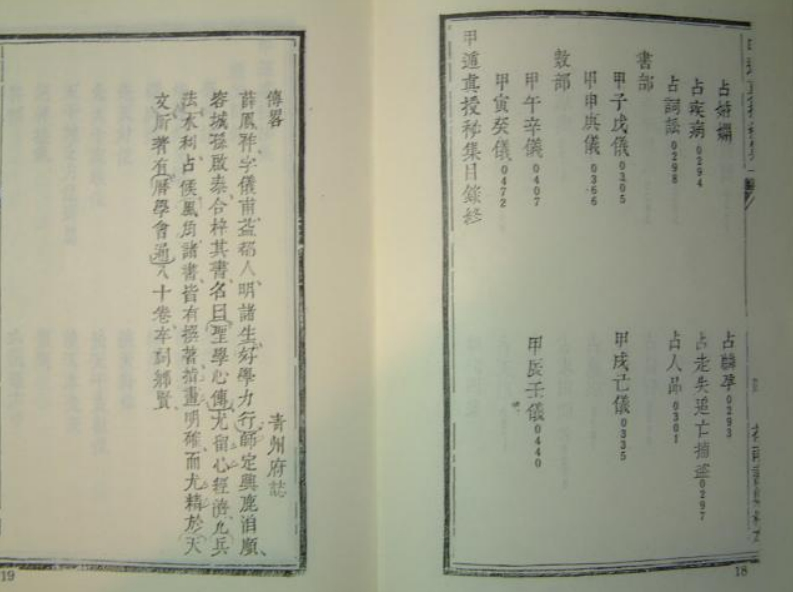 占婚姻
占孕 0293
占疾病 0294
占走失逃亡捕盜 0297
占詞訟 0298
占人品 0301
書部
甲子戊儀 0305
甲戌己儀 0335
甲申庚儀 0366
數部
甲午辛儀 0407
甲辰壬儀 0440
甲寅癸儀 0472
甲遁真授秘集目錄終
18
傳畧
青州府誌
薛鳳祚字儀甫益都人明諸生好學力行師定興鹿泊順
容城孫啟泰合梓其書名曰聖學心傳尤留心經濟凡兵
法水利占候風角諸書皆有撰著指畫明確而尤精於天
文所著有曆學會通八十卷卒祠鄉賢
19